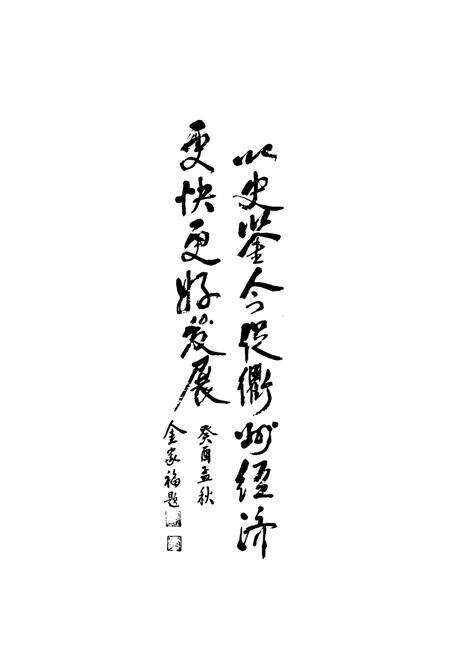 以史鉴今促衢州经济
更快更好发展
癸酉孟秋
金家福题